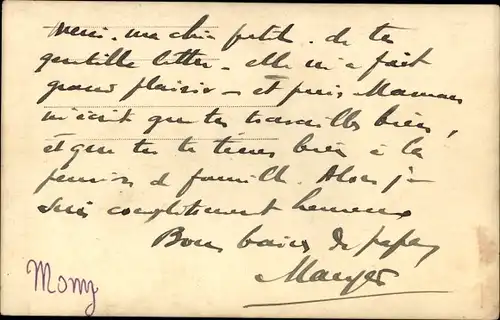 Merci, ma chère petite, de ta
gentille lettre - elle m'a fait
grand plaisir - et puis Maman
m'écrit que tu travailles bien,
et que tu te tiens bien à la
pension de famille. Alors je
suis complètement heureux
Bons baisers de papa
Mauger
Momy